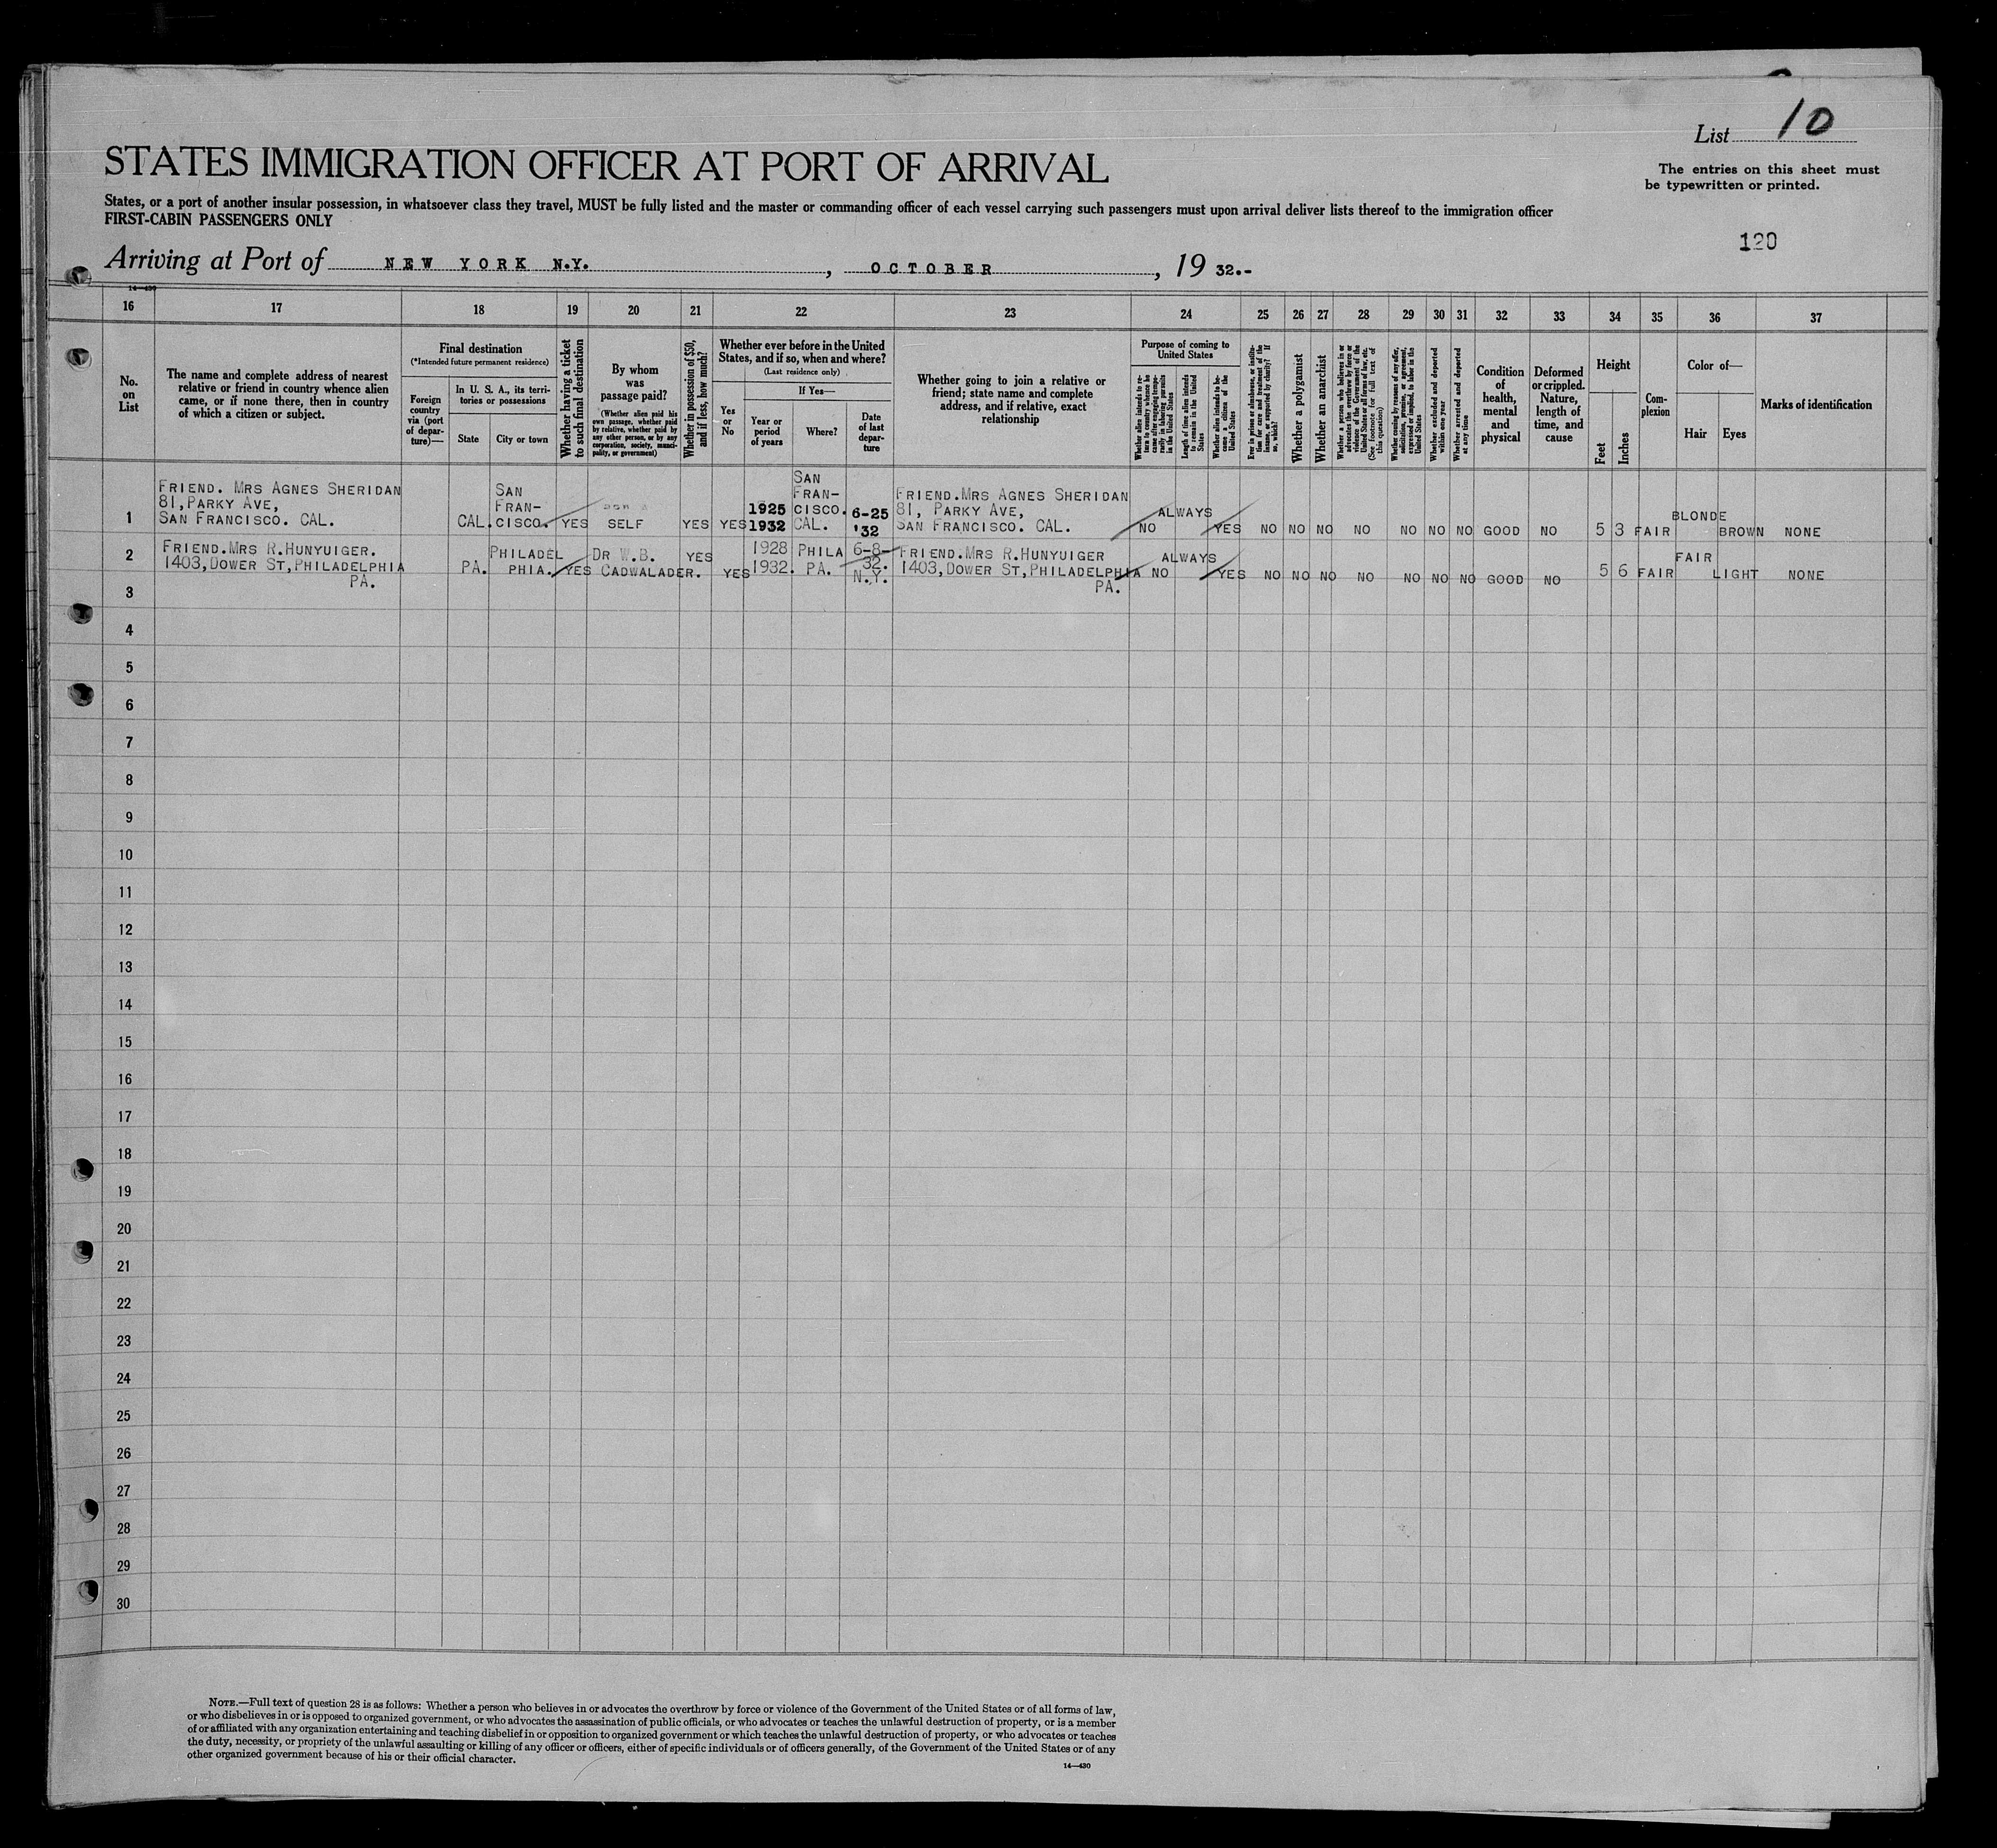 List 10
STATES IMMIGRATION OFFICER AT PORT OF ARRIVAL
The entries on this sheet must
be typewritten or printed.
States, or a port of another insular possession, in whatsoever class they travel, MUST be fully listed and the master or commanding officer of each vessel carrying such passengers must upon arrival deliver lists thereof to the immigration officer
FIRST-CABIN PASSENGERS ONLY
120
Arriving at Port of NEW YORK N.Y. , OCTOBER , 19 32.-
14—430
16 17 18 19 20 21 22 23 24 25 26 27 28 29 30 31 32 33 34 35 36 37
No.
on
List
The name and complete address of nearest
relative or friend in country whence alien
came, or if none there, then in country
of which a citizen or subject.
Final destination
(*Intended future permanent residence)
Foreign
country
via (port
of depar-
ture)—
In U. S. A., its terri-
tories or possessions
State
City or town
Whether having a ticket
to such final destination
By whom
was
passage paid?
(Whether alien paid his
own passage, whether paid
by relative, whether paid by
any other person, or by any
corporation, society, munici-
pality, or government)
Whether in possession of $50,
and if less, how much?
Whether ever before in the United
States, and if so, when and where?
(Last residence only)
Yes
or
No
If Yes—
Year or
period
of years
Where?
Date
of last
depar-
ture
Whether going to join a relative or
friend; state name and complete
address, and if relative, exact
relationship
Purpose of coming to
United States
Whether alien intends to re-
turn to country whence he
came after engaging tempo-
rarily in laboring pursuits
in the United States
Length of time alien intends
to remain in the United
States
Whether alien intends to be-
come a citizen of the
United States
Ever in prison or almshouse, or institu-
tion for care and treatment of the
insane, or supported by charity? If
so, which?
Whether a polygamist
Whether an anarchist
Whether a person who believes in or
advocates the overthrow by force or
violence of the Government of the
United States or all forms of law, etc.
(See footnote for full text of
this question)
Whether coming by reason of any offer,
solicitation, promise, or agreement,
expressed or implied, to labor in the
United States
Whether excluded and deported
within one year
Whether arrested and deported
at any time
Condition
of
health,
mental
and
physical
Deformed
or crippled.
Nature,
length of
time, and
cause
Height
Feet
Inches
Com-
plexion
Color of—
Hair
Eyes
Marks of identification
1
FRIEND. MRS AGNES SHERIDAN
81,PARKY AVE,
SAN FRANCISCO. CAL.
CAL.
SAN
FRAN-
CISCO.
YES
SELF
YES
YES
1925
1932
SAN
FRAN-
CISCO.
CAL.
6-25
'32
FRIEND.MRS AGNES SHERIDAN
81, PARKY AVE,
SAN FRANCISCO. CAL.
NO
ALWAYS
YES
NO NO NO NO NO NO NO GOOD NO 5 3 FAIR BLONDE BROWN NONE
2
FRIEND.MRS R.HUNYUIGER.
1403,DOWER ST,PHILADELPHIA
PA.
PA.
PHILADEL
PHIA.
YES
DR W.B.
CADWALADER.
YES
YES
1928
1932.
PHILA
PA.
6-8-
32.
N.Y.
FRIEND.MRS R.HUNYUIGER
1403,DOWER ST,PHILADELPHIA
PA.
NO
ALWAYS
YES
NO NO NO NO NO NO NO GOOD NO 5 6 FAIR FAIR LIGHT NONE
3
4
5
6
7
8
9
10
11
12
13
14
15
16
17
18
19
20
21
22
23
24
25
26
27
28
29
30
NOTE.—Full text of question 28 is as follows: Whether a person who believes in or advocates the overthrow by force or violence of the Government of the United States or of all forms of law,
or who disbelieves in or is opposed to organized government, or who advocates the assassination of public officials, or who advocates or teaches the unlawful destruction of property, or is a member
of or affiliated with any organization entertaining and teaching disbelief in or opposition to organized government or which teaches the unlawful destruction of property, or who advocates or teaches
the duty, necessity, or propriety of the unlawful assaulting or killing of any officer or officers, either of specific individuals or of officers generally, of the Government of the United States or of any
other organized government because of his or their official character.
14—430